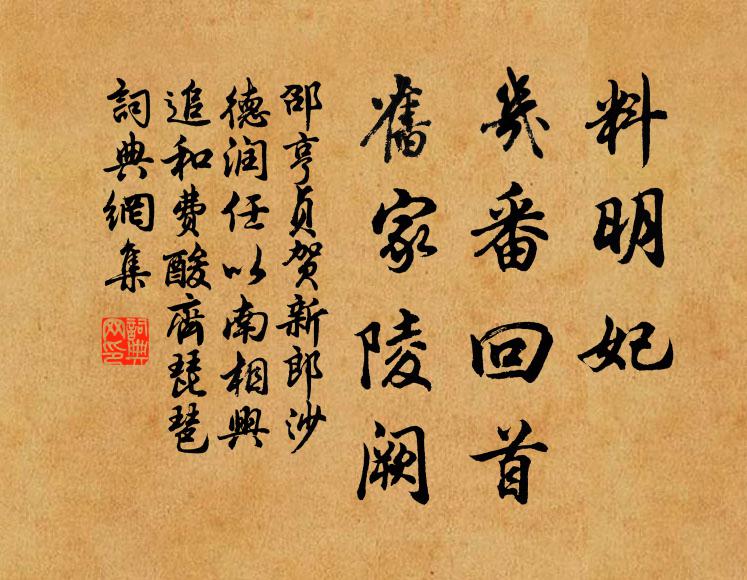 料明妃
幾番回首
舊家陵阙
邵亨貞賀新郎沙
德润任以南相與
追和費酸齋琵琶
詞典網集
詞典網印